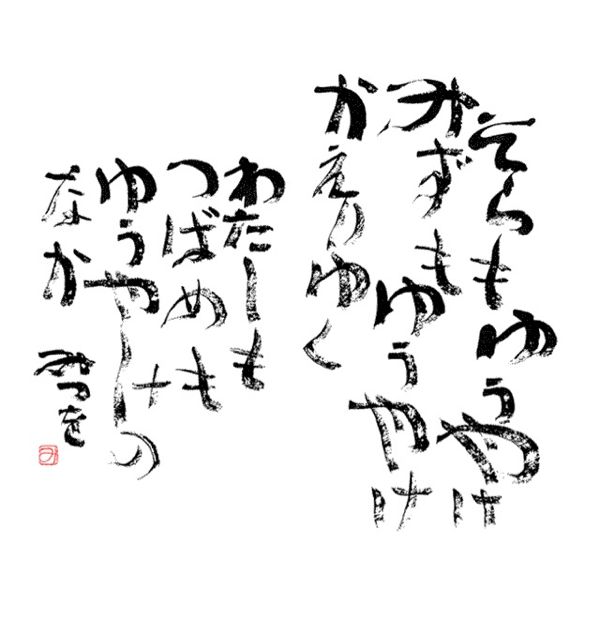 そらもゆうやけ
みずもゆうやけ
かえりゆく
わたしも
つばめも
ゆうやけの
なか
みつを